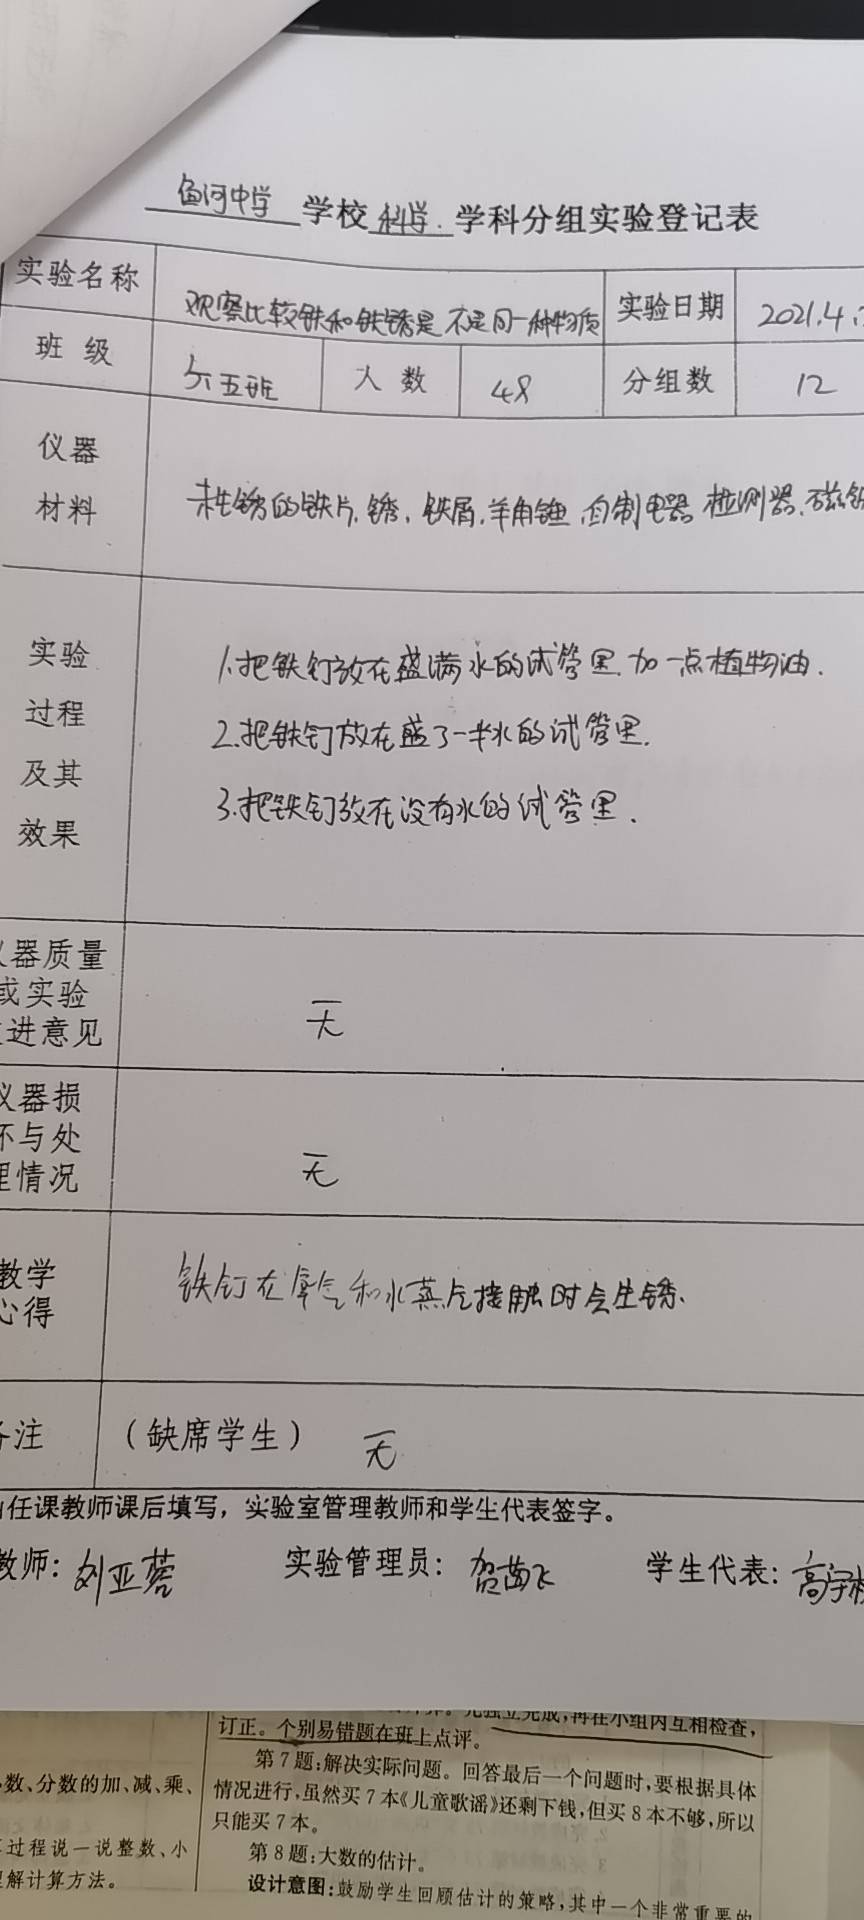 鱼河中学 学校 科学. 学科分组实验登记表
实验名称 观察比较铁和铁锈是不是同一种物质 实验日期 2021.4.
班 级 六五班 人 数 48 分组数 12
仪器
材料
未生锈的铁片,锈,铁屑,羊角锤,自制电器检测器,磁铁
实验
过程
及其
效果
1.把铁钉放在盛满水的试管里,加一点植物油.
2.把铁钉放在盛了一半水的试管里.
3.把铁钉放在没有水的试管里.
器质量
或实验
进意见
无
仪器损
坏与处
理情况
无
教学
心得
铁钉在氧气和水蒸气接触时会生锈.
注 (缺席学生) 无
由任课教师课后填写，实验室管理教师和学生代表签字。
教师: 刘亚蓉 实验管理员: 贺苗飞 学生代表: 高宇
独立完成,再在小组内互相检查,
订正。个别易错题在班上点评。
第 7 题:解决实际问题。回答最后一个问题时,要根据具体
情况进行,虽然买 7 本《儿童歌谣》还剩下钱,但买 8 本不够,所以
只能买 7 本。
第 8 题:大数的估计。
设计意图:鼓励学生回顾估计的策略,其中一个非常重要的
数、分数的加、减、乘、
过程说一说整数、小
理解计算方法。